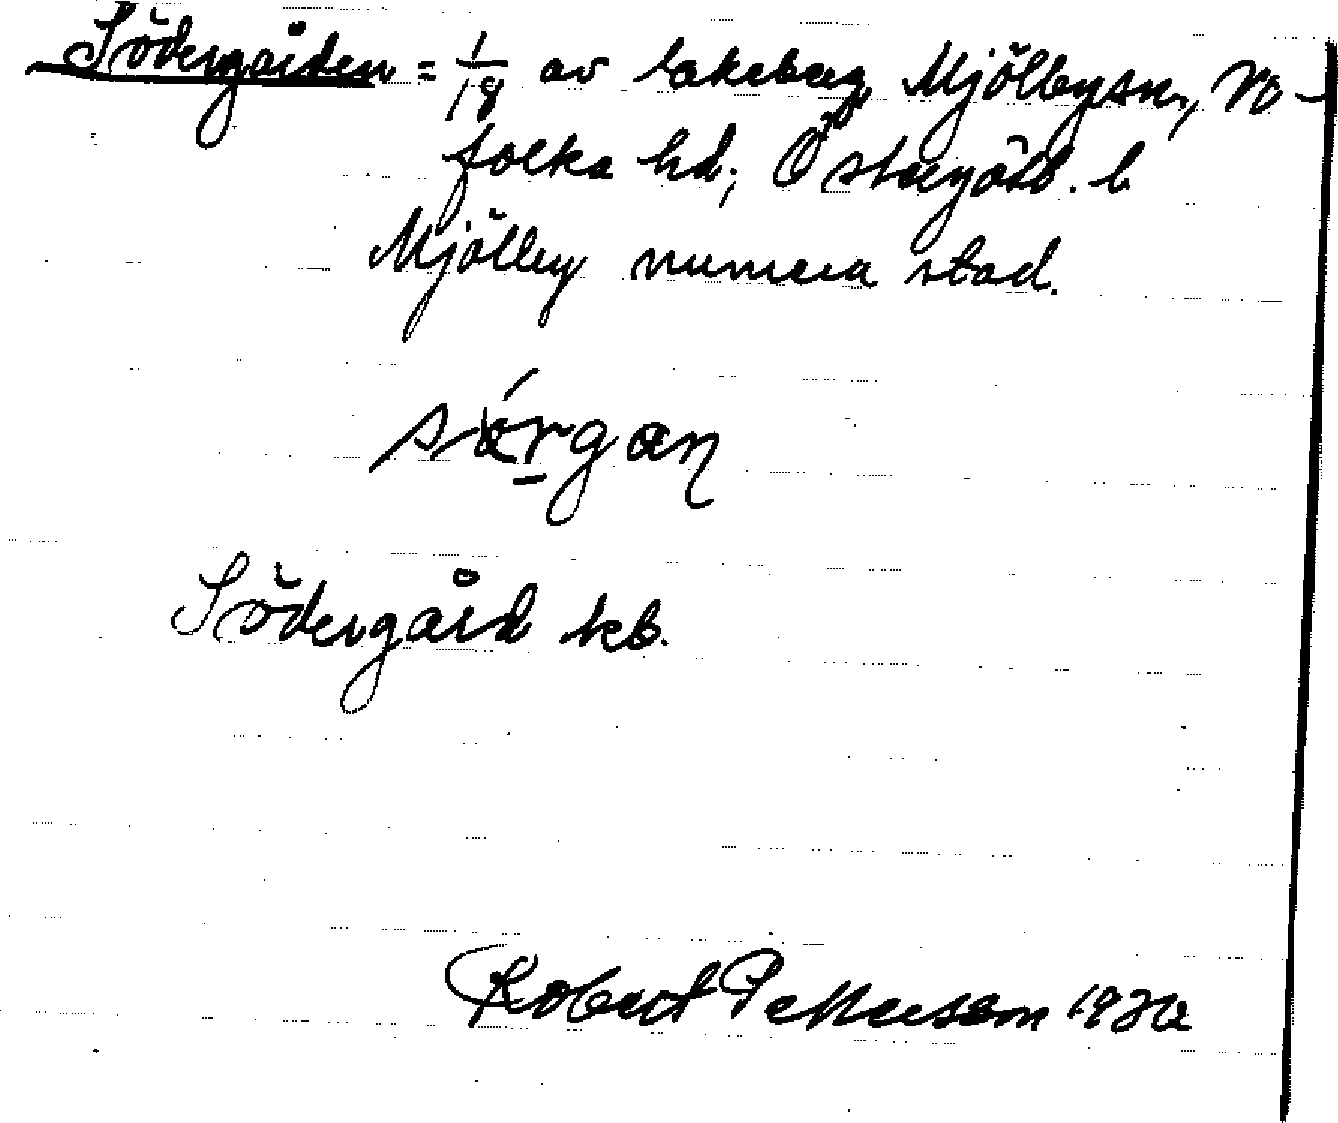 Södergården = 1/18 av Lakeberg, Mjölbysn, Vi-
folka hd; Östergötl. l
Mjölby numera stad.
Södergård kb.
Robert Pettersson